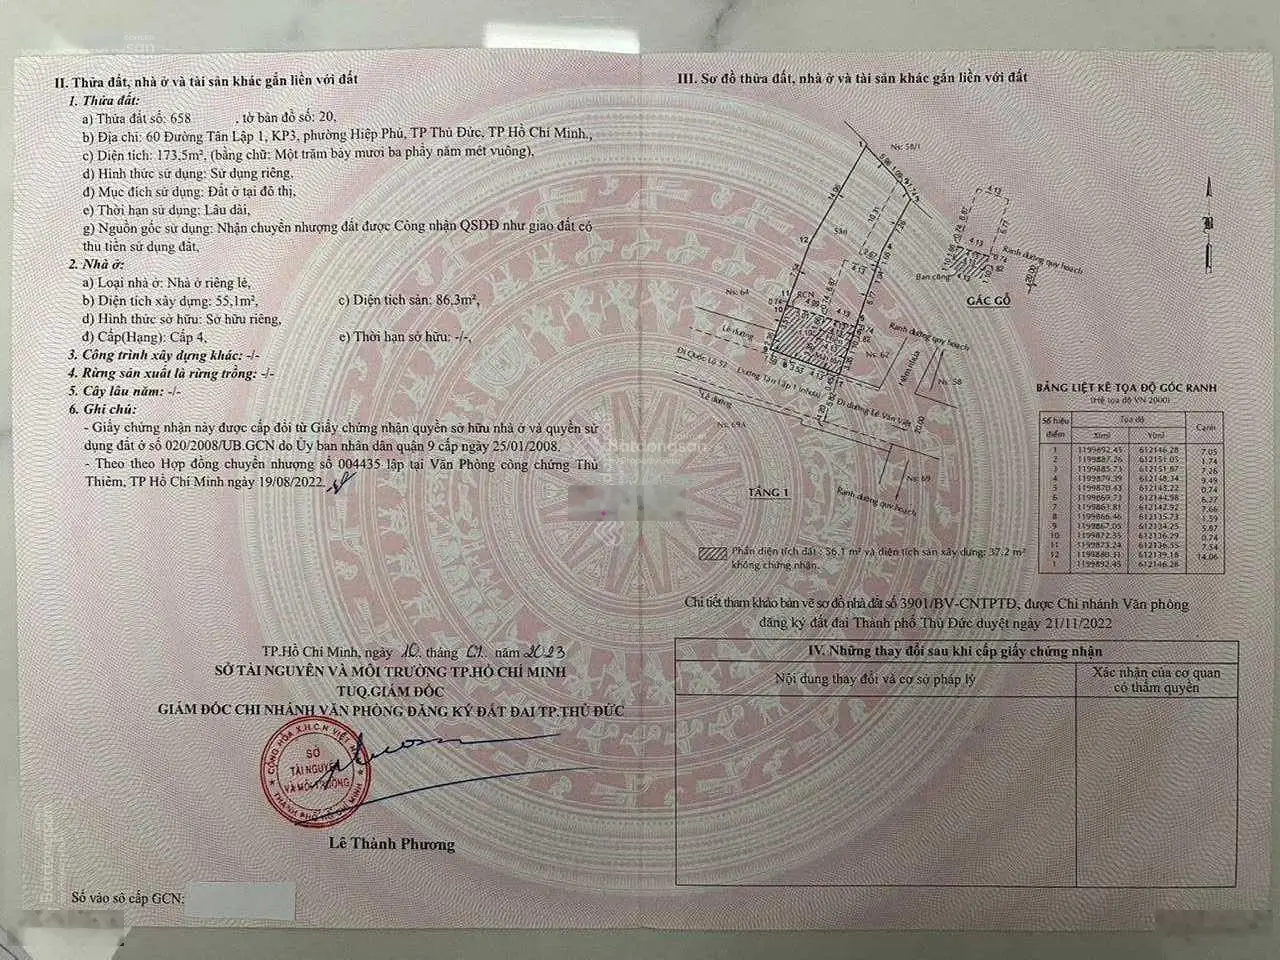 II. Thửa đất, nhà ở và tài sản khác gắn liền với đất
1. Thửa đất:
a) Thửa đất số: 658 , tờ bản đồ số: 20,
b) Địa chỉ: 60 Đường Tân Lập 1, KP3, phường Hiệp Phú, TP Thủ Đức, TP Hồ Chí Minh.,
c) Diện tích: 173,5m², (bằng chữ: Một trăm bảy mươi ba phẩy năm mét vuông),
d) Hình thức sử dụng: Sử dụng riêng,
đ) Mục đích sử dụng: Đất ở tại đô thị,
e) Thời hạn sử dụng: Lâu dài,
g) Nguồn gốc sử dụng: Nhận chuyển nhượng đất được Công nhận QSDĐ như giao đất có
thu tiền sử dụng đất,
2. Nhà ở:
a) Loại nhà ở: Nhà ở riêng lẻ,
b) Diện tích xây dựng: 55,1m², c) Diện tích sàn: 86,3m²,
d) Hình thức sở hữu: Sở hữu riêng,
đ) Cấp(Hạng): Cấp 4, e) Thời hạn sở hữu: -/-,
3. Công trình xây dựng khác: -/-
4. Rừng sản xuất là rừng trồng: -/-
5. Cây lâu năm: -/-
6. Ghi chú:
- Giấy chứng nhận này được cấp đổi từ Giấy chứng nhận quyền sở hữu nhà ở và quyền sử
dụng đất ở số 020/2008/UB.GCN do Ủy ban nhân dân quận 9 cấp ngày 25/01/2008.
- Theo theo Hợp đồng chuyển nhượng số 004435 lập tại Văn Phòng công chứng Thủ
Thiêm, TP Hồ Chí Minh ngày 19/08/2022.
TP.Hồ Chí Minh, ngày 10. tháng 01. năm 2023
SỞ TÀI NGUYÊN VÀ MÔI TRƯỜNG TP.HỒ CHÍ MINH
TUQ.GIÁM ĐỐC
GIÁM ĐỐC CHI NHÁNH VĂN PHÒNG ĐĂNG KÝ ĐẤT ĐAI TP.THỦ ĐỨC
CỘNG HÒA X.H.C.N VIỆT NAM
SỞ
TÀI NGUYÊN
VÀ MÔI TRƯỜNG
THÀNH PHỐ HỒ CHÍ MINH
Lê Thành Phương
Số vào sổ cấp GCN:
III. Sơ đồ thửa đất, nhà ở và tài sản khác gắn liền với đất
Ns: 58/1
Sân
Ns: 64
Lề đường
Đi Quốc Lộ 52
Đường Tân Lập 1 (nhựa)
Đi đường Lê Văn Việt
Lề đường
Ns: 69A
Ns: 62
Ranh đường quy hoạch
Hẻm nhựa
Ns: 58
20.00
Ns: 69
Ranh đường quy hoạch
TẦNG 1
B
4.13
Ranh đường quy hoạch
Ban công
20.00
GÁC GỖ
BẢNG LIỆT KÊ TỌA ĐỘ GÓC RANH
(Hệ tọa độ VN 2000)
Số hiệu điểm Tọa độ Cạnh
X(m) Y(m)
1 1199892.45 612146.28 7.05
2 1199887.26 612151.05 1.74
3 1199885.73 612151.87 7.26
4 1199879.39 612148.34 9.49
5 1199870.43 612145.22 0.74
6 1199869.73 612144.98 6.27
7 1199863.81 612142.92 7.66
8 1199866.46 612135.73 1.59
9 1199867.05 612134.25 5.87
10 1199872.35 612136.29 0.74
11 1199873.24 612136.55 7.54
12 1199880.31 612139.18 14.06
1 1199892.45 612146.28
Phần diện tích đất : 36.1 m² và diện tích sàn xây dựng: 37.2 m²
không chứng nhận.
Chi tiết tham khảo bản vẽ sơ đồ nhà đất số 3901/BV-CNTPTĐ, được Chi nhánh Văn phòng
đăng ký đất đai Thành phố Thủ Đức duyệt ngày 21/11/2022
IV. Những thay đổi sau khi cấp giấy chứng nhận
Nội dung thay đổi và cơ sở pháp lý
Xác nhận của cơ quan
có thẩm quyền
Batdongsan